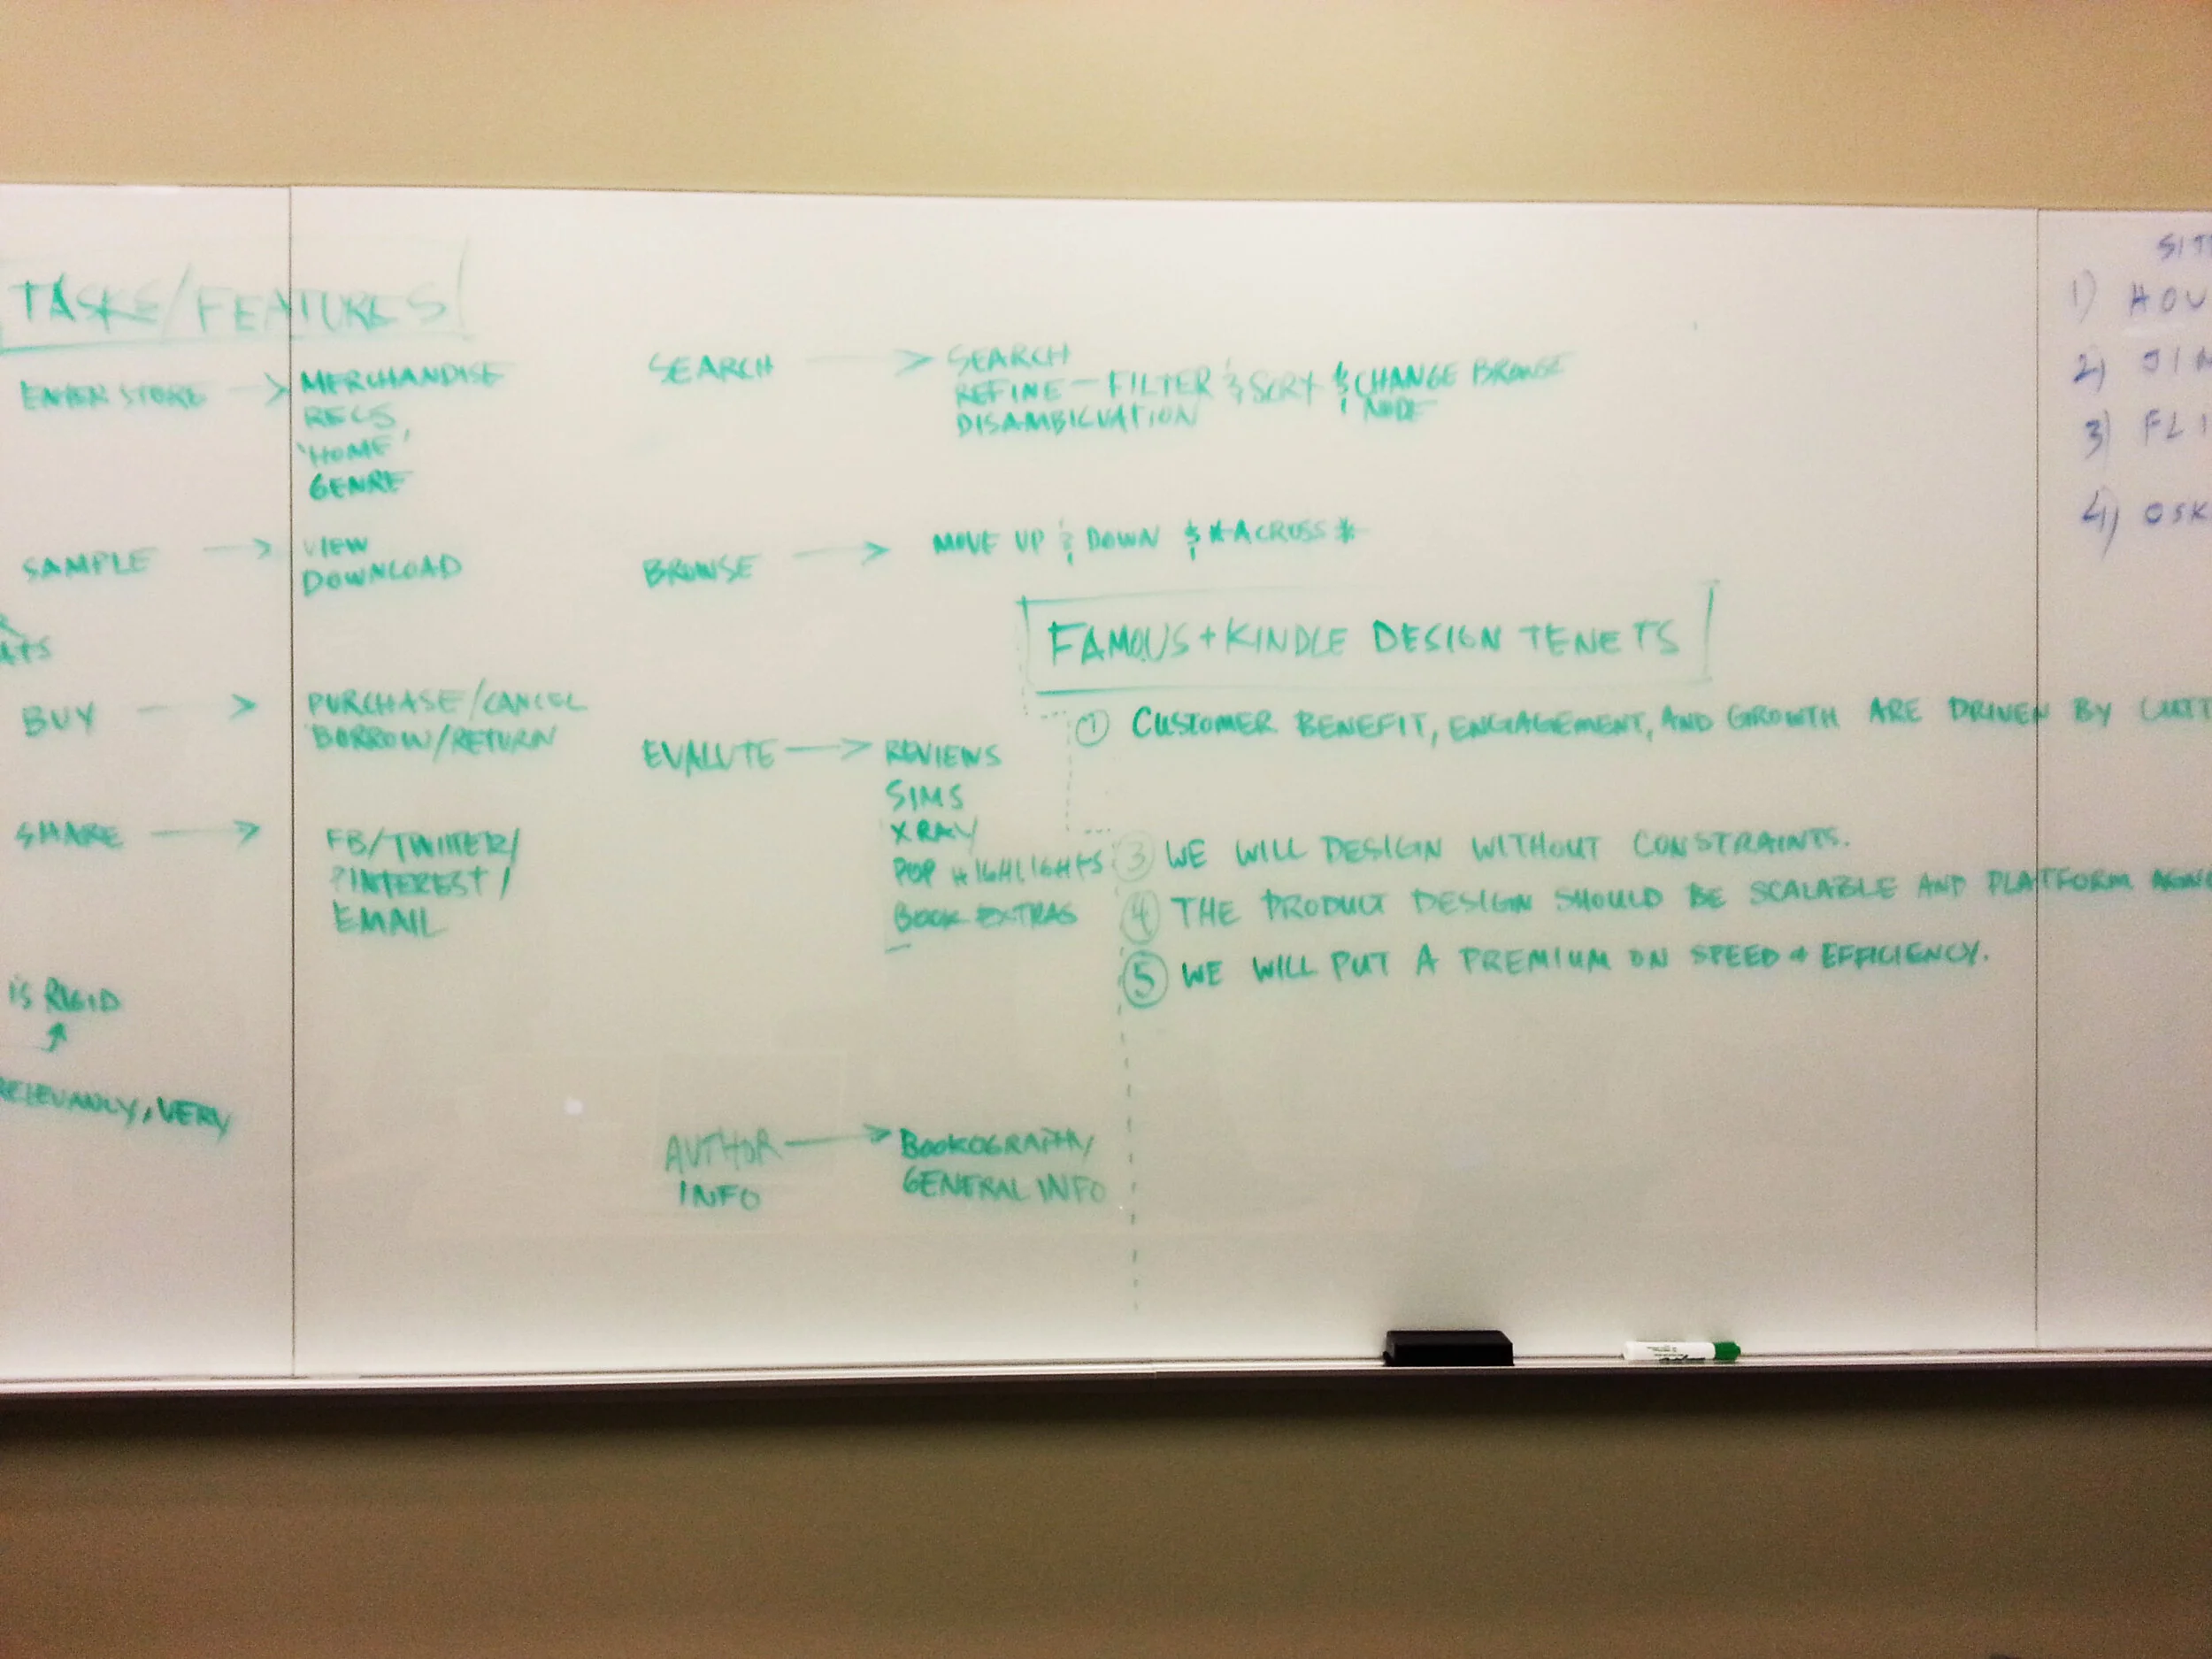 TASKS/FEATURES
ENTER STORE → MERCHANDISE
RECS
'HOME'
GENRE
SAMPLE → VIEW
DOWNLOAD
BUY → PURCHASE/CANCEL
BORROW/RETURN
SHARE → FB/TWITTER/
PINTEREST/
EMAIL
IS RIGID
VERY
SEARCH → SEARCH
REFINE - FILTER & SORT & CHANGE BROWSE
NODE
DISAMBIGUATION
BROWSE → MOVE UP & DOWN & *ACROSS*
EVALUTE → REVIEWS
SIMS
XRAY
POP HIGHLIGHTS
BOOK EXTRAS
AUTHOR → BOOKOGRAPHY/
INFO GENERAL INFO
FAMOUS + KINDLE DESIGN TENETS
1 CUSTOMER BENEFIT, ENGAGEMENT, AND GROWTH ARE DRIVEN BY
3 WE WILL DESIGN WITHOUT CONSTRAINTS.
4 THE PRODUCT DESIGN SHOULD BE SCALABLE AND PLATFORM
5 WE WILL PUT A PREMIUM ON SPEED + EFFICIENCY.
SIT
1) HOU
2) JIM
3) FLI
4) OSK